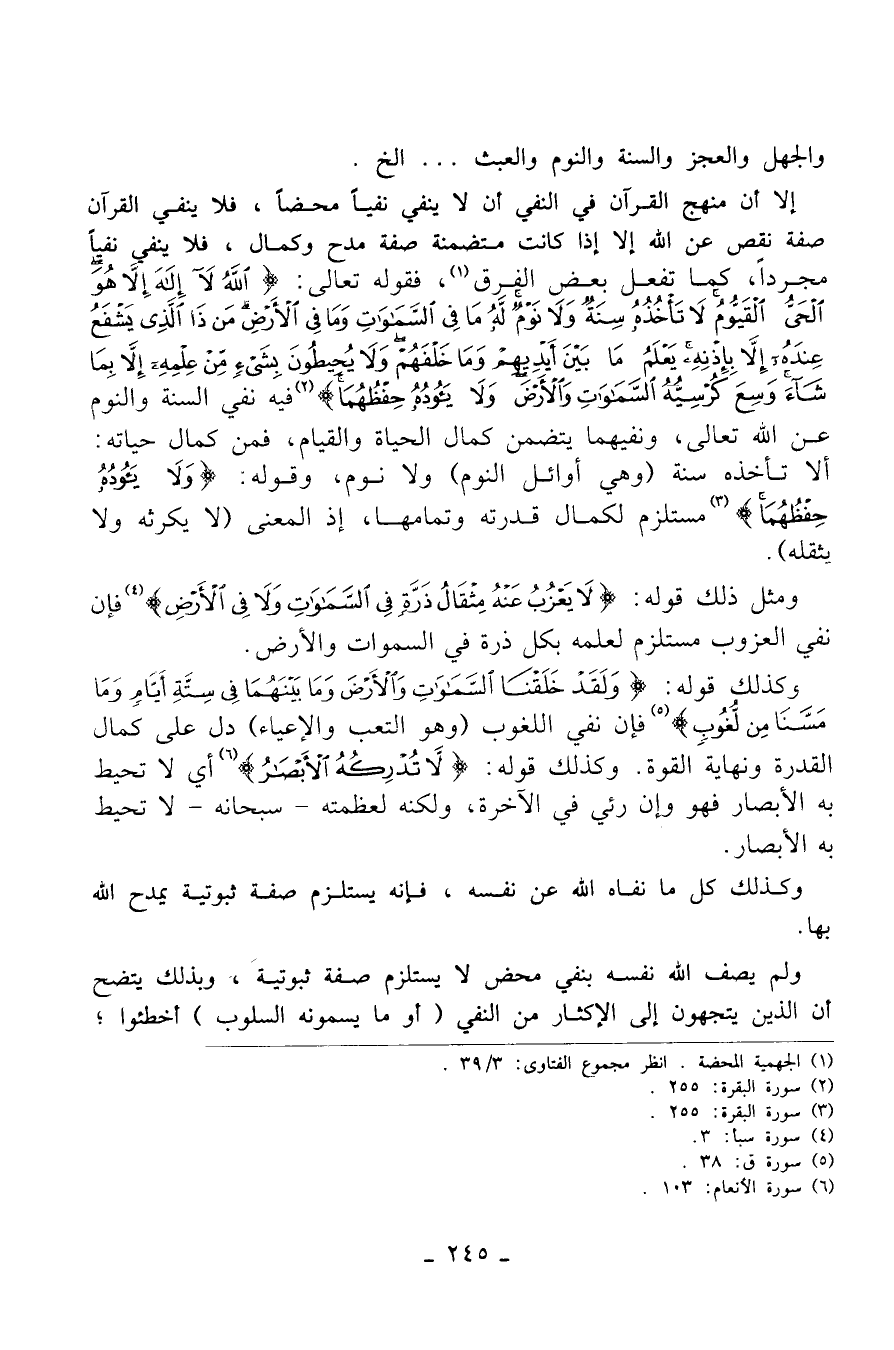 والجهل والعجز والسنة والنوم والعبث ... الخ .
إلا أن منهج القرآن في النفي أن لا ينفي نفياً محضاً ، فلا ينفي القرآن
صفة نقص عن الله إلا إذا كانت متضمنة صفة مدح وكمال ، فلا ينفي نفياً
مجرداً، كما تفعل بعض الفرق(١)، فقوله تعالى: ﴿ ٱللَّهُ لَآ إِلَٰهَ إِلَّا هُوَۖ
ٱلۡحَيُّ ٱلۡقَيُّومُۚ لَا تَأۡخُذُهُۥ سِنَةٞ وَلَا نَوۡمٞۚ لَّهُۥ مَا فِي ٱلسَّمَٰوَٰتِ وَمَا فِي ٱلۡأَرۡضِۗ مَن ذَا ٱلَّذِي يَشۡفَعُ
عِندَهُۥٓ إِلَّا بِإِذۡنِهِۦۚ يَعۡلَمُ مَا بَيۡنَ أَيۡدِيهِمۡ وَمَا خَلۡفَهُمۡۖ وَلَا يُحِيطُونَ بِشَيۡءٖ مِّنۡ عِلۡمِهِۦٓ إِلَّا بِمَا
شَآءَۚ وَسِعَ كُرۡسِيُّهُ ٱلسَّمَٰوَٰتِ وَٱلۡأَرۡضَۖ وَلَا يَـُٔودُهُۥ حِفۡظُهُمَاۚ﴾(٢)فيه نفي السنة والنوم
عن الله تعالى، ونفيهما يتضمن كمال الحياة والقيام، فمن كمال حياته:
ألا تأخذه سنة (وهي أوائل النوم) ولا نوم، وقوله: ﴿وَلَا يَـُٔودُهُۥ
حِفۡظُهُمَاۚ﴾(٣)مستلزم لكمال قدرته وتمامها، إذ المعنى (لا يكرثه ولا
يثقله).
ومثل ذلك قوله: ﴿لَا يَعۡزُبُ عَنۡهُ مِثۡقَالُ ذَرَّةٖ فِي ٱلسَّمَٰوَٰتِ وَلَا فِي ٱلۡأَرۡضِ﴾(٤)فإن
نفي العزوب مستلزم لعلمه بكل ذرة في السموات والأرض.
وكذلك قوله: ﴿ وَلَقَدۡ خَلَقۡنَا ٱلسَّمَٰوَٰتِ وَٱلۡأَرۡضَ وَمَا بَيۡنَهُمَا فِي سِتَّةِ أَيَّامٖ وَمَا
مَسَّنَا مِن لُّغُوبٖ﴾(٥)فإن نفي اللغوب (وهو التعب والإعياء) دل على كمال
القدرة ونهاية القوة. وكذلك قوله: ﴿لَّا تُدۡرِكُهُ ٱلۡأَبۡصَٰرُ﴾(٦)أي لا تحيط
به الأبصار فهو وإن رئي في الآخرة، ولكنه لعظمته - سبحانه - لا تحيط
به الأبصار.
وكذلك كل ما نفاه الله عن نفسه ، فإنه يستلزم صفة ثبوتية يمدح الله
بها.
ولم يصف الله نفسه بنفي محض لا يستلزم صفة ثبوتية ، وبذلك يتضح
أن الذين يتجهون إلى الإكثار من النفي ( أو ما يسمونه السلوب ) أخطئوا ؛
(١) الجهمية المحضة . انظر مجموع الفتاوى: ٣٩/٣ .
(٢) سورة البقرة: ٢٥٥ .
(٣) سورة البقرة: ٢٥٥ .
(٤) سورة سبأ: ٣.
(٥) سورة ق: ٣٨ .
(٦) سورة الأنعام: ١٠٣ .
ـ ٢٤٥ ـ